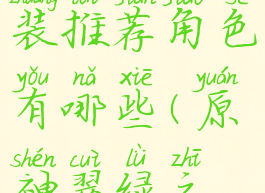 装推荐角色
yǒu nǎ xiē yuán
有哪些(原
shén cuì lǜ zhī
神翠绿之